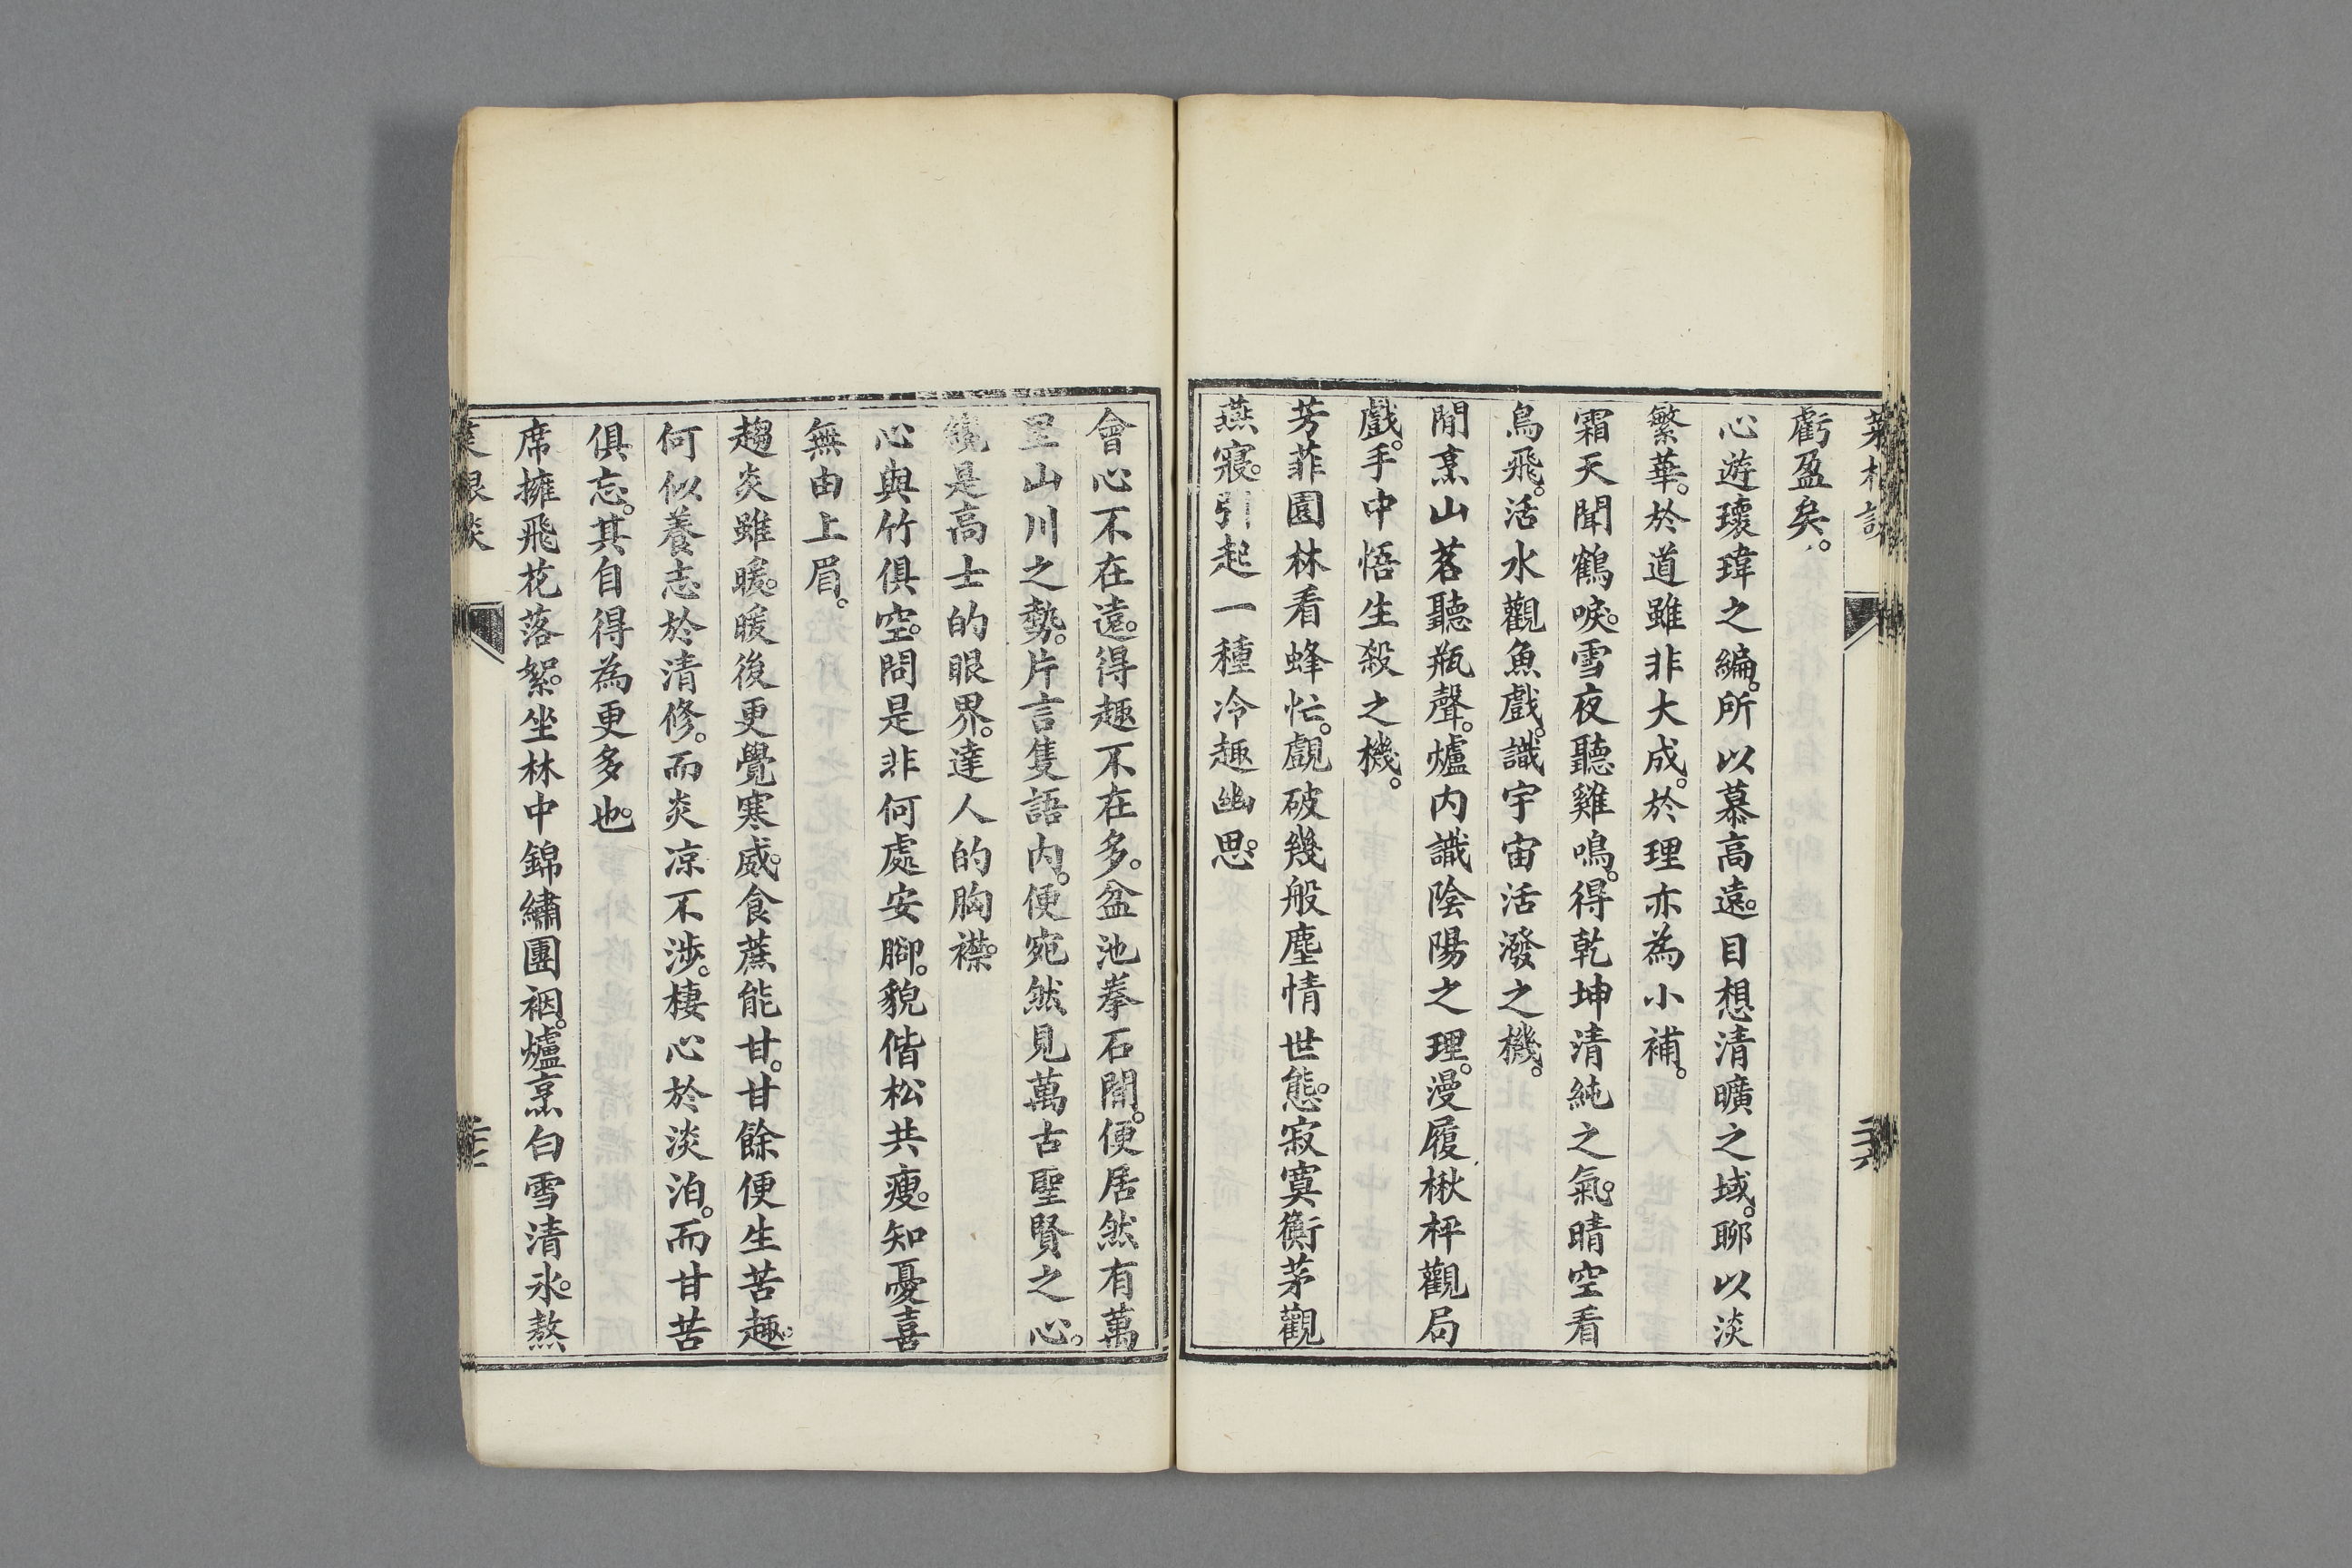 虧盈矣。
心遊瓌瑋之編。所以慕高遠。目想清曠之域。聊以淡
繁華。於道雖非大成。於理亦為小補。
霜天聞鶴唳。雪夜聽雞鳴。得乾坤清純之氣。晴空看
鳥飛。活水觀魚戲。識宇宙活潑之機。
閒烹山茗聽瓶聲。爐内識陰陽之理。漫履楸枰觀局
戲。手中悟生殺之機。
芳菲園林看蜂忙。覷破幾般塵情世態。寂寞衡茅觀
燕寢。引起一種冷趣幽思。
會心不在遠。得趣不在多。盆池拳石間。便居然有萬
里山川之勢。片言隻語内。便宛然見萬古聖賢之心。
纔是高士的眼界。達人的胸襟。
心與竹俱空。問是非何處安腳。貌偕松共瘦。知憂喜
無由上眉。
趨炎雖暖。暖後更覺寒威。食蔗能甘。甘餘便生苦趣。
何似養志於清修。而炎凉不涉。棲心於淡泊。而甘苦
俱忘。其自得為更多也。
席擁飛花落絮。坐林中錦繡團裀。爐烹白雪清氷。熬